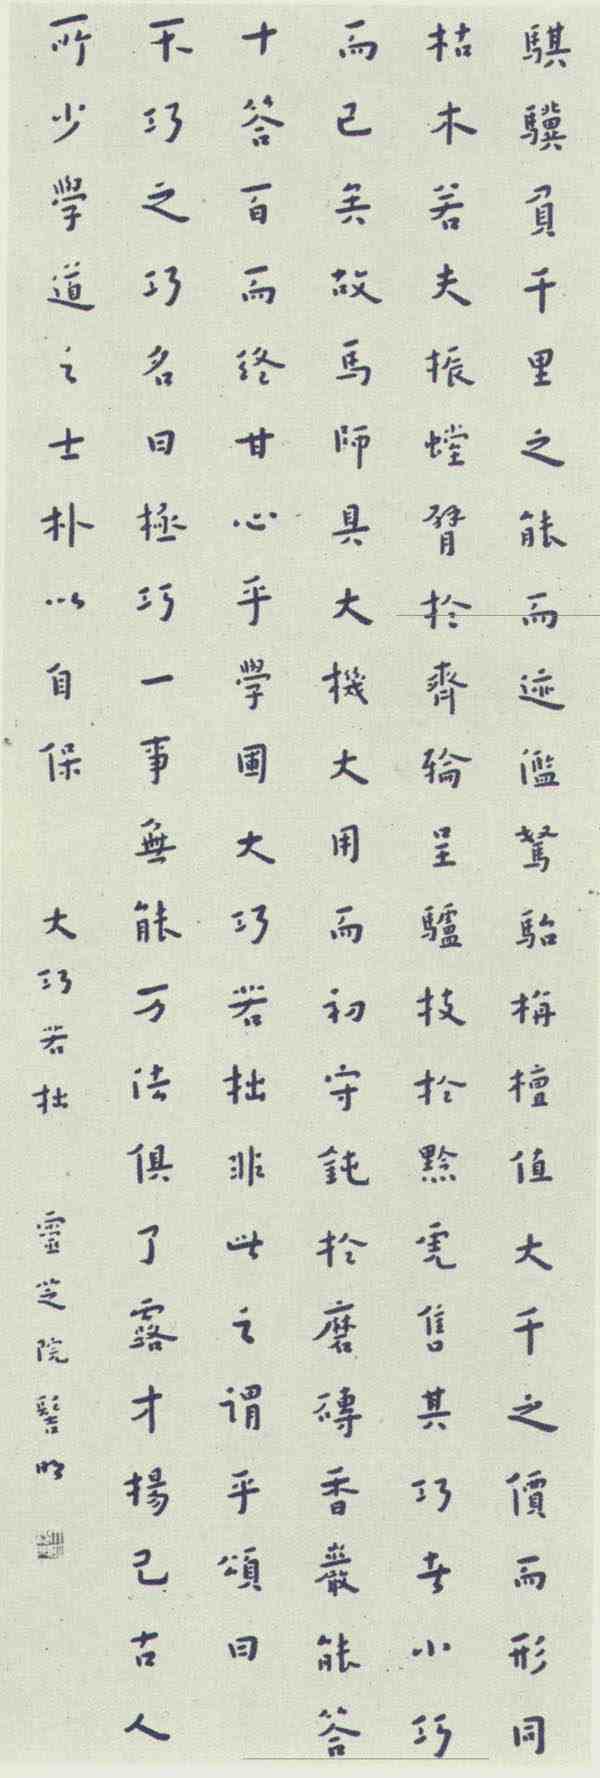 騏驥負千里之能而迹濫駑駘栴檀值大千之價而形同
枯木若夫振螳臂於齊輪呈驢技於黔虎售其巧者小巧
而已矣故馬師具大機大用而初守鈍於磨磚香嚴能答
十答百而終甘心乎學圃大巧若拙非此之謂乎頌曰
不巧之巧名曰極巧一事無能万法俱了露才揚己古人
所少學道之士朴以自保
大巧若拙
靈芝院
明